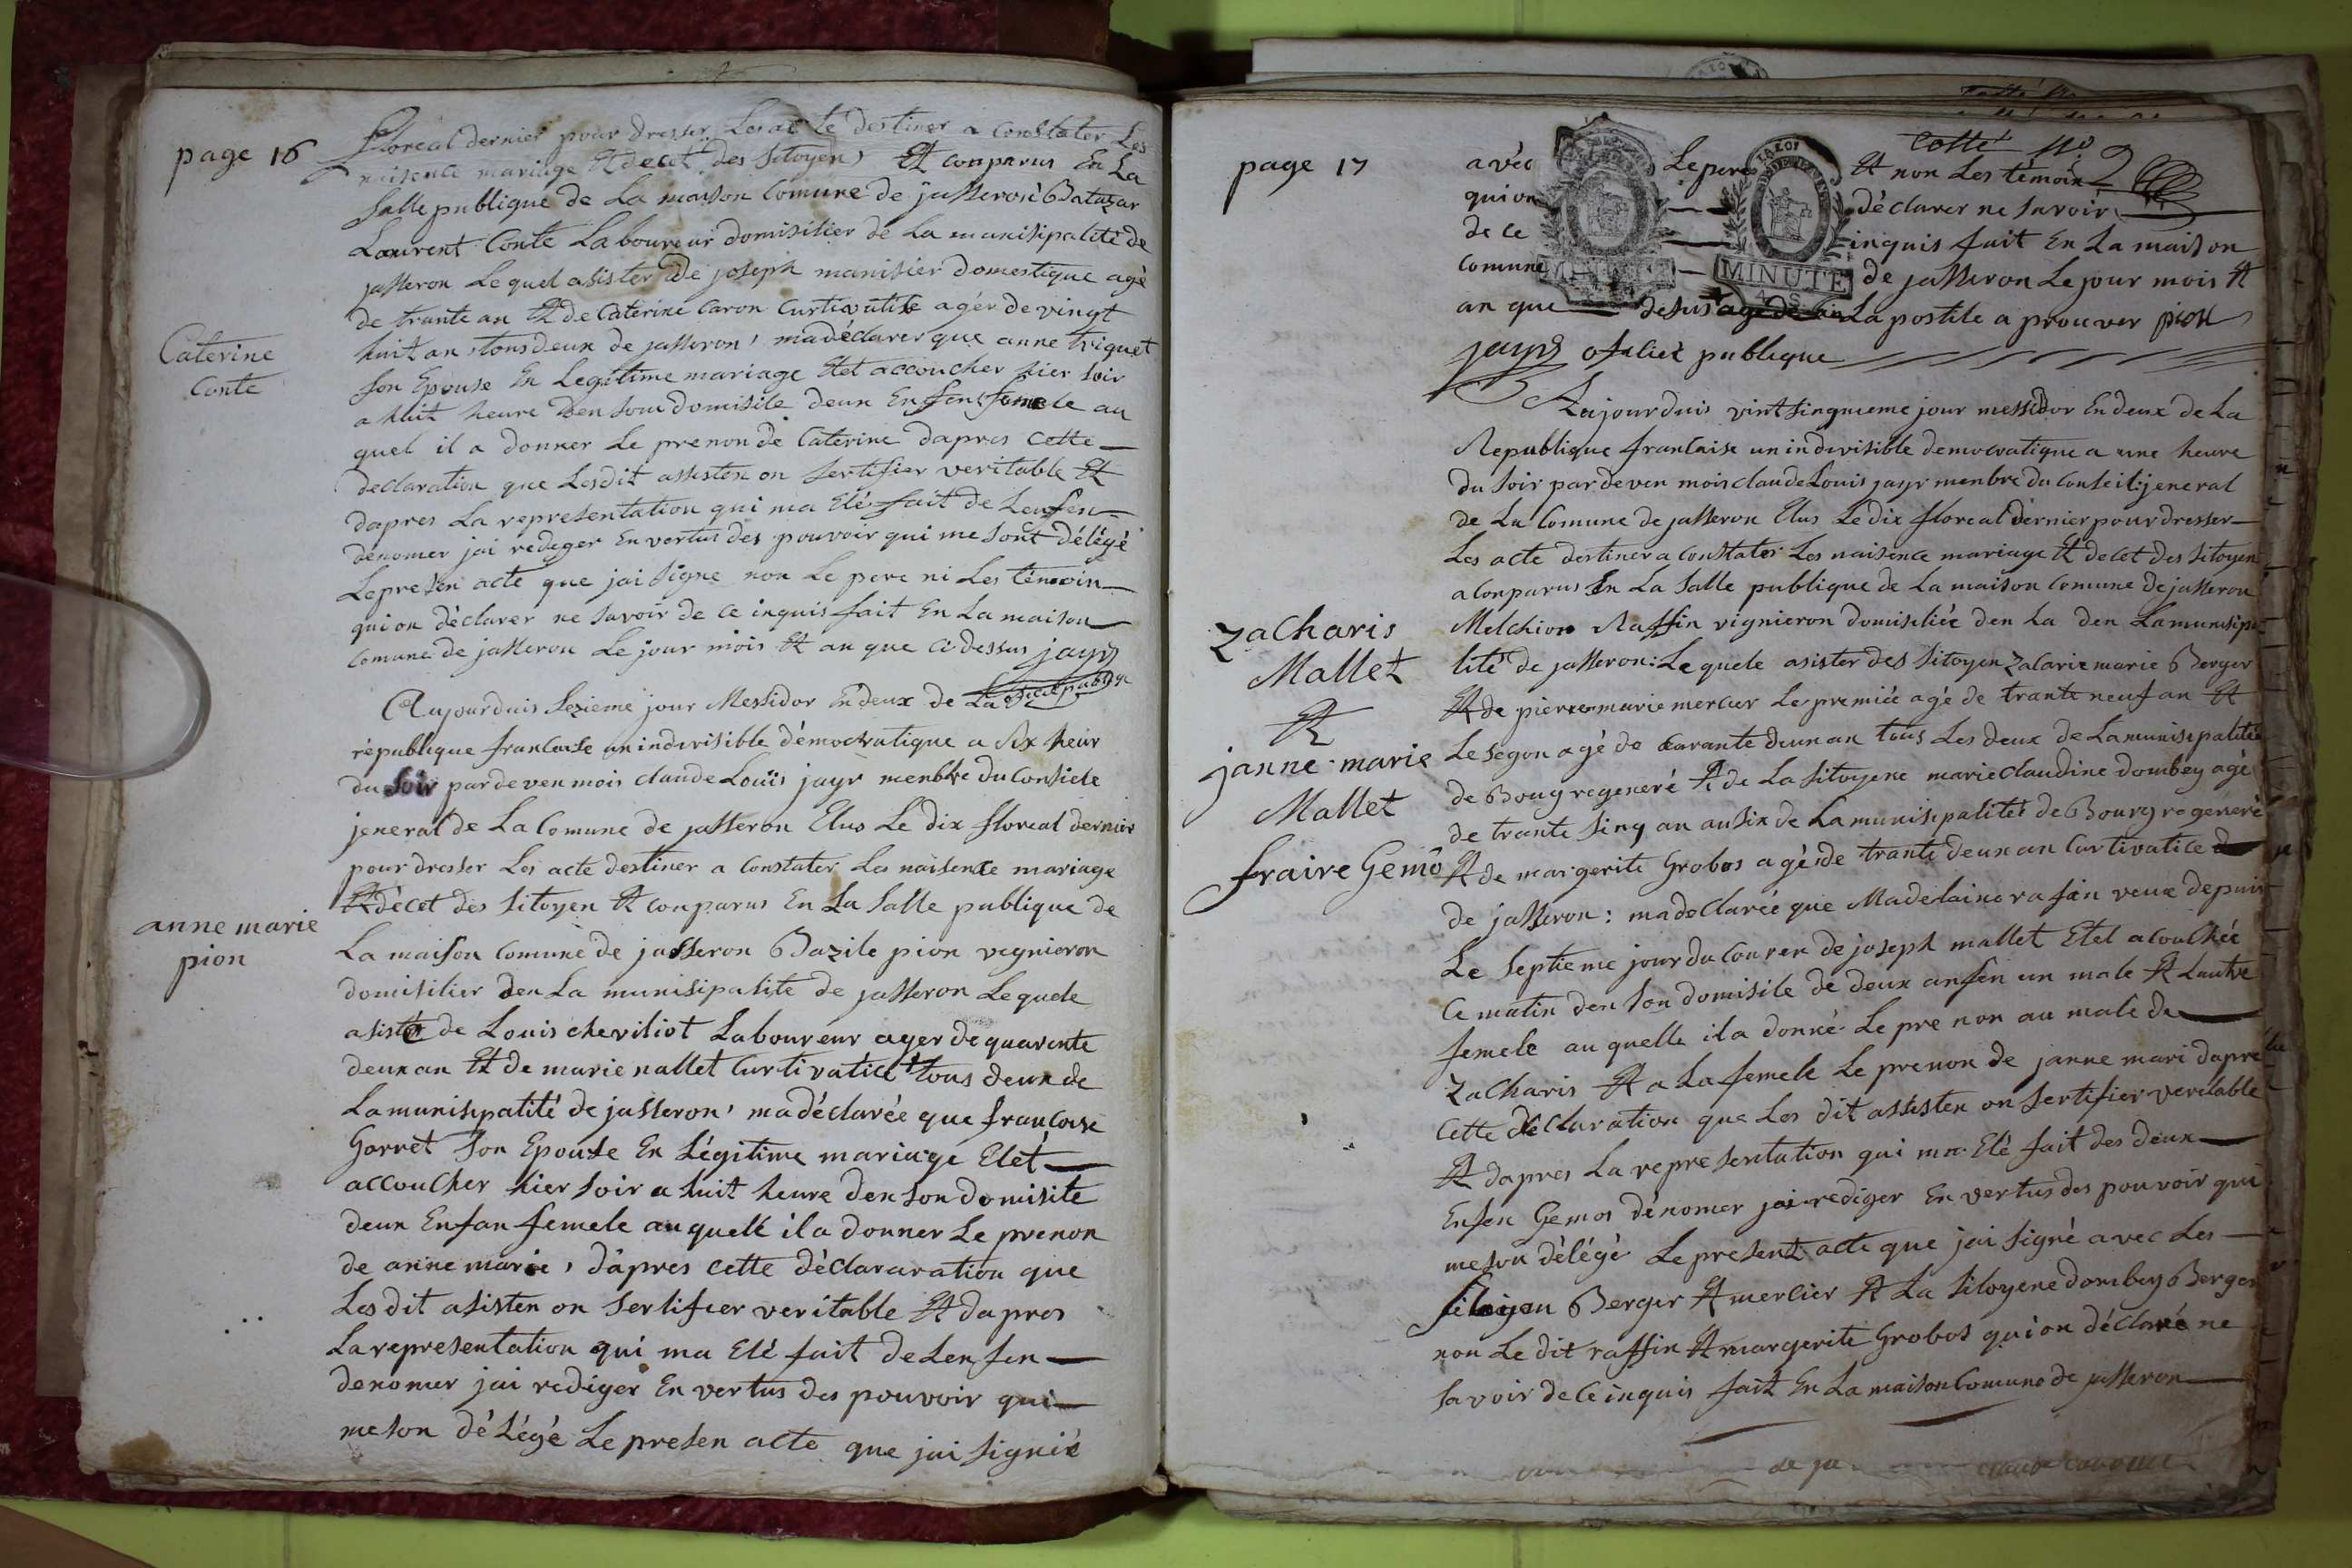 page 16
floreal dernier pour dresser Les acte destiner a Constater Les
naisence mariage Et decet des Sitoyen Et conparus En La
Salle publique de La maison Comune de jasseron Batazar
Laurent Conte Laboureur domisilier de La munisipalité de
jasseron Le quel asister de joseph manisier domestique agé
de trante an Et de Caterine Caron Curtivatise agér de vingt
huit an tous deux de jasseron, ma déclarer que anne triquet
Caterine
Conte
Son Epouse En Legitime mariage Etet accoucher hier Soir
a huit heure den Son domisile deun Enfens femele au
quel il a donner Le prenon de Caterine dapres Cette
declaration que Lesdit assisten on Sertifier veritable Et
dapres La representation qui ma Eté fait de Lenfen
dénomer jai rediger En vertus des pouvoir qui me Sont délégé
Lepresen acte que jai Signe non Le pere ni Les témoin
qui on déclarer ne Savoir de Ce inquis fait En La maison
Comune de jasseron Le jour mois Et an que Ci dessus jayr
oficié publique
Aujourduis Sezieme jour Messidor En deux de La
république francaise un indivisible démocratique a Six heur
du Soir pardeven mois claude Louis jayr menbre du Consiele
jeneral de La Comune de jasseron Elus Le dix floreal dernier
pour dresser Les acte destiner a Constater Les naisence mariage
Et décet des Sitoyen Et conparus En La Salle publique de
anne marie
pion
La maison Comune de jasseron Bazile pion vignieron
domisilier den La munisipalite de jasseron Le quele
asister de Louis cheviliot Laboureur ager de quarente
deux an Et de marie nallet Curtivatice tous deux de
La munisipalité de jasseron, ma déclarée que francoise
Gorret Son Epouse En Légitime mariage Etet
accoucher hier Soir a huit heure den Son domisile
deun Enfan femele au quelle il a donner Le prenon
de anne marie, dapres Cette déclararation que
Les dit asisten on Sertifier veritable Et dapres
La representation qui ma Eté fait de Lenfen
denomer jai rediger En vertus des pouvoir qui
me Son délégé Le presen acte que jai Signié
page 17
Cotté no 9
avéc Le pere Et non Les témoin
qui on déclarer ne Savoir
de Ce inquis fait En La maison
Comune de jasseron Le jour mois Et
MINUTE
MINUTE
an que desus La postile a prouver pion
jayr oficiéé publique
Aujourduis vint Singuieme jour messidor En deux de La
Republique francaise un indivisible democratique a une heure
du Soir pardeven mois claude Louis jayr menbre du Conseil jeneral
de La Comune de jasseron Elus Le dix floreal dernier pour dresser
Les acte destiner a Constater Les naisence mariage Et decet des Sitoyen
a Conparus En La Salle publique de La maison Comune de jasseron
Zacharis
Mallet
Et
janne marie
Mallet
fraire Gemo
Melchior Raffin vignieron domisiliée den La den La munisipa
lité de jasseron: Le quele asister des Sitoyen Zacarie marie Berger
Et de pierre marie mercier Le premiée agé de trante neuf an Et
Le Segon agé de Carante deux an tous Les deux de La munisipalitée
de Boug regeneré Et de La Sitoyene marie claudine dombey agé
de trante Sinq an ausix de La munisipalitée de Bourg regeneré
Et de margerite Grobos agé de trante deux an Curtivatice
de jasseron: ma declarée que Madelaine rafin veuve depuis
Le Septieme jour du Couren de joseph mallet Etet acouchée
Ce matin den Son domisile de deux anfen un male Et Lautre
femele au quelle il a donné Le pre non au male de
Zacharis Et a La femele Le prenon de janne mari dapre
Cette declaration que Les dit assisten on Sertifier veritable
Et dapres La representation qui ma Eté fait des deux
Enfen Gemos dénomer jai rediger En vertus des pouvoir qui
me Son délégé Le present acte que jai Signé avec Les
Sitoyen Berger Et mercier Et La Sitoyene dombey Berger
non Le dit raffin Et margerite Grobos qui on déclaré ne
Savoir de Ce inquis fait En La maison Comune de jasseron